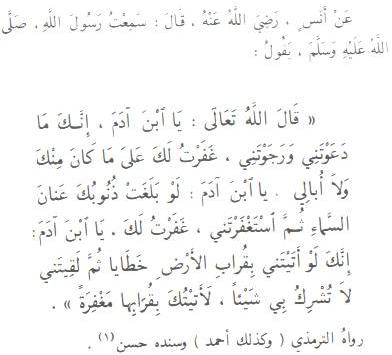 عَنْ أَنَسٍ ، رَضِيَ اللَّهُ عَنْهُ ، قَالَ : سَمِعْتُ رَسُولَ اللَّهِ ، صَلَّى
اللَّهُ عَلَيْهِ وَسَلَّمَ ، يَقُولُ :
« قَالَ اللَّهُ تَعَالَى : يَا ٱبْنَ آدَمَ ، إِنَّكَ مَا
دَعَوْتَنِي وَرَجَوْتَنِي ، غَفَرْتُ لَكَ عَلَى مَا كَانَ مِنْكَ
وَلاَ أُبالِي . يا ٱبْنَ آدَمَ : لَوْ بَلَغَتْ ذُنُوبُكَ عَنانَ
السَّماءِ ثُمَّ ٱسْتَغْفَرْتَني ، غَفَرْتُ لَكَ . يَا ٱبْنَ آدَمَ :
إِنَّكَ لَوْ أَتَيْتَني بِقُرابِ الأَرْضِ خَطَايا ثُمَّ لَقِيتَني
لاَ تُشْرِكُ بِي شَيْئاً ، لَأَتَيْتُكَ بِقُرَابِها مَغْفِرَةً » .
رواهُ الترمذي ( وكذلك أحمد ) وسنده حسن (١) .